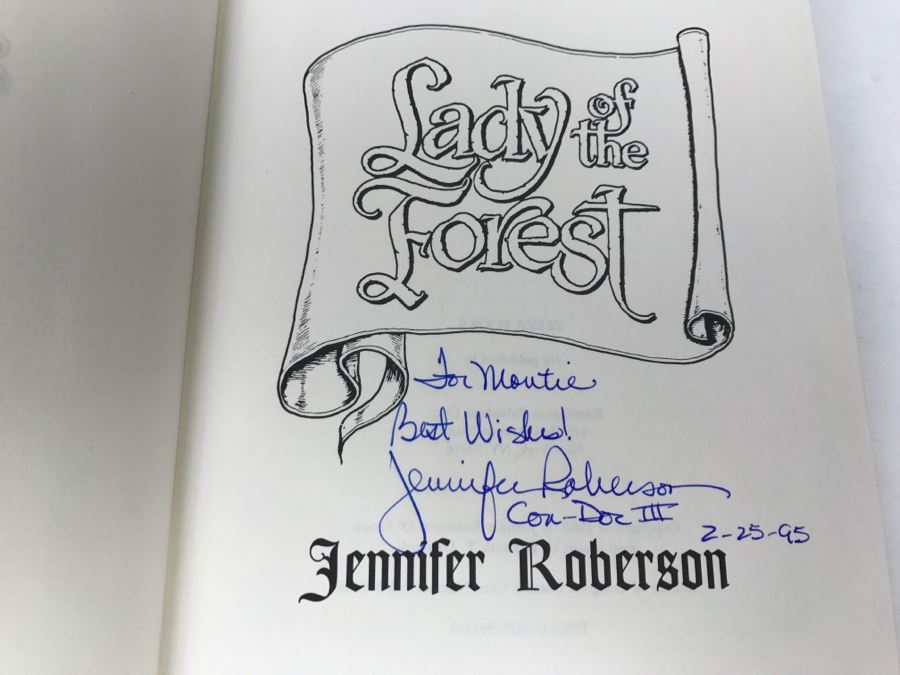 Lady of the
Forest
For Montie
Best Wishes!
Jennifer Roberson
Con-Doc III
2-25-95
Jennifer Roberson